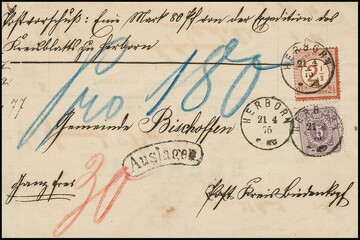 Postvorschuß: Eine Mark 80 Pf von der Expedition des
Kreisblatts zu Herborn
Pro 180
HERBORN
21 4
75
2½
2½
Gemeinde Bischoffen
HERBORN
21 4
75
HERBORN
5
Auslagen
ganz frei
30
Post Kreis Biedenkopf